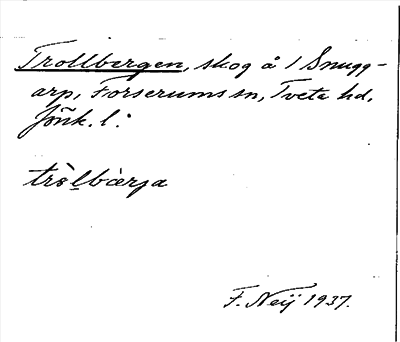 Trollbergen, skog å 1 Snugg-
arp, Forserums sn, Tveta hd,
Jönk. l:
trɵ̀lbærja
F. Neij 1937.